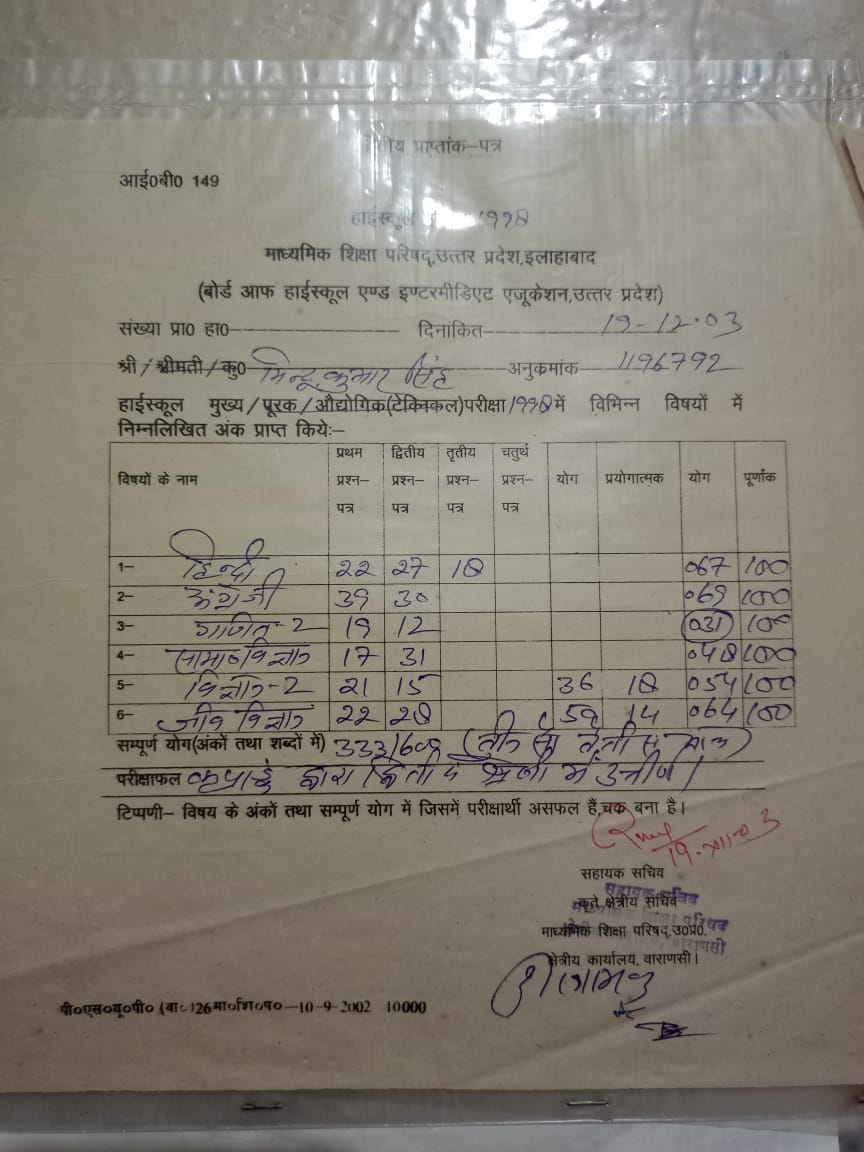 द्वितीय प्राप्तांक–पत्र
आई0बी0 149
हाईस्कूल 1998
माध्यमिक शिक्षा परिषद्,उत्तर प्रदेश,इलाहाबाद
(बोर्ड आफ हाईस्कूल एण्ड इण्टरमीडिएट एजूकेशन,उत्तर प्रदेश)
संख्या प्रा0 हा0 दिनांकित 19-12-03
श्री / श्रीमती / कु0 मिन्टू कुमार सिंह अनुकमांक 1196792
हाईस्कूल मुख्य / पूरक / औद्योगिक(टेक्निकल)परीक्षा 1998 में विभिन्न विषयों में
निम्नलिखित अंक प्राप्त कियेः–
विषयों के नाम प्रथम प्रश्न–पत्र द्वितीय प्रश्न–पत्र तृतीय प्रश्न–पत्र चतुर्थ प्रश्न–पत्र योग प्रयोगात्मक योग पूर्णांक
1– हिन्दी 22 27 18 067 100
2– अंग्रेजी 39 30 069 100
3– गणित-2 19 12 031 100
4– सामा० विज्ञान 17 31 048 100
5– विज्ञान-2 21 15 36 18 054 100
6– जीव विज्ञान 22 28 50 14 064 100
सम्पूर्ण योग(अंकों तथा शब्दों में) 333/600 (तीन सौ तैंतीस मात्र)
परीक्षाफल कृपांक द्वारा द्वितीय श्रेणी में उत्तीर्ण।
टिप्पणी– विषय के अंकों तथा सम्पूर्ण योग में जिसमें परीक्षार्थी असफल हैं,चक बना है।
सहायक सचिव
सहायक सचिव
कृते क्षेत्रीय सचिव
माध्यमिक शिक्षा परिषद
माध्यमिक शिक्षा परिषद्,उ0प्र0,
वाराणसी
क्षेत्रीय कार्यालय, वाराणसी।
पी०एस०यू०पी० (बा०)26 मा०शि०प०—10-9-2002 10000